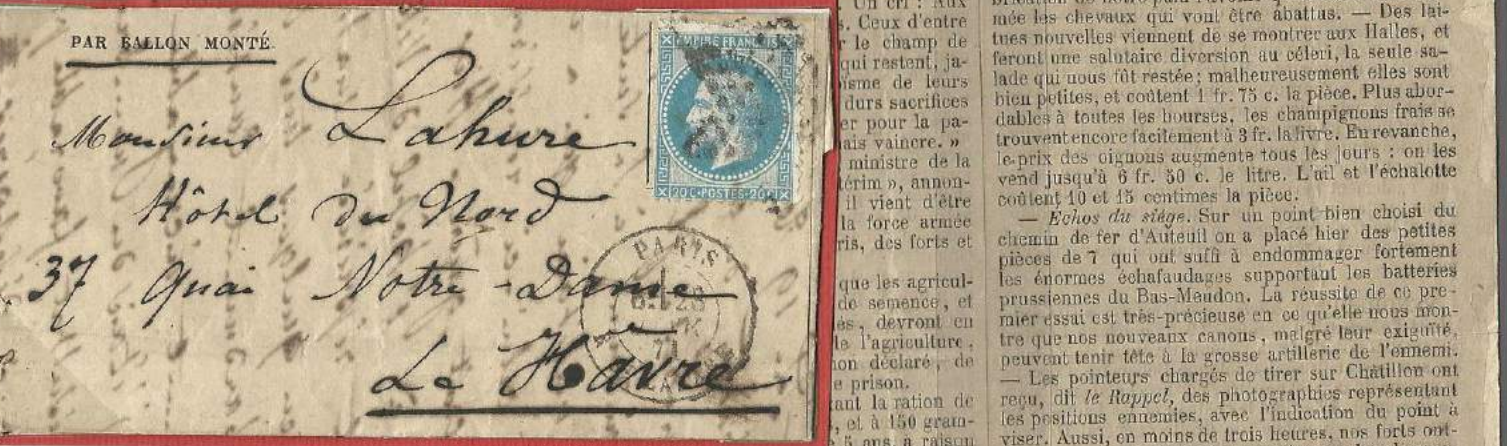 PAR BALLON MONTÉ.
EMPIRE FRANÇAIS
20C·POSTES·20C
Monsieur Lahure
Hôtel du Nord
37 Quai Notre-Dame
Le Havre
PARIS
Un cri : Aux
s. Ceux d'entre
r le champ de
qui restent, ja-
ïsme de leurs
durs sacrifices
er pour la pa-
ais vaincre. »
ministre de la
térim », annon-
il vient d'être
la force armée
ris, des forts et
que les agricul-
de semence, et
és, devront en
de l'agriculture,
on déclaré, de
e prison.
ant la ration de
, et à 150 gram-
5 ans a raison
mée les chevaux qui vont être abattus. — Des lai-
tues nouvelles viennent de se montrer aux Halles, et
feront une salutaire diversion au céleri, la seule sa-
lade qui nous fût restée; malheureusement elles sont
bien petites, et coûtent 1 fr. 75 c. la pièce. Plus abor-
dables à toutes les bourses, les champignons frais se
trouvent encore facilement à 3 fr. la livre. En revanche,
le prix des oignons augmente tous les jours : on les
vend jusqu'à 6 fr. 50 c. le litre. L'ail et l'échalotte
coûtent 10 et 15 centimes la pièce.
— Échos du siége. Sur un point bien choisi du
chemin de fer d'Auteuil on a placé hier des petites
pièces de 7 qui ont suffi à endommager fortement
les énormes échafaudages supportant les batteries
prussiennes du Bas-Meudon. La réussite de ce pre-
mier essai est très-précieuse en ce qu'elle nous mon-
tre que nos nouveaux canons, malgré leur exiguïté,
peuvent tenir tête à la grosse artillerie de l'ennemi.
— Les pointeurs chargés de tirer sur Châtillon ont
reçu, dit le Rappel, des photographies représentant
les positions ennemies, avec l'indication du point à
viser. Aussi, en moins de trois heures, nos forts ont-